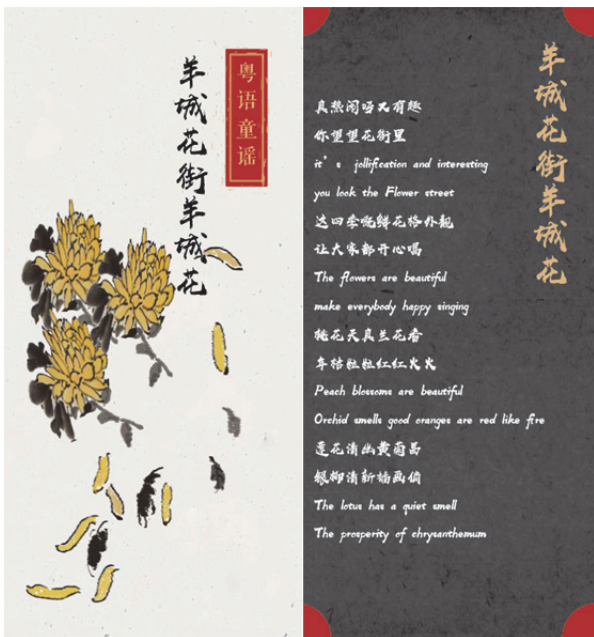 粤语童谣
羊城花街羊城花
羊城花街羊城花
真热闹呀又有趣
你望望花街里
it's jollification and interesting
you look the Flower street
达四季嘅鲜花格外靓
让大家都开心唱
The flowers are beautiful
make everybody happy singing
桃花夭真兰花香
年桔粒粒红红火火
Peach blossoms are beautiful
Orchid smells good oranges are red like fire
莲花清幽黄菊昌
银柳清新插画倘
The lotus has a quiet smell
The prosperity of chrysanthemum